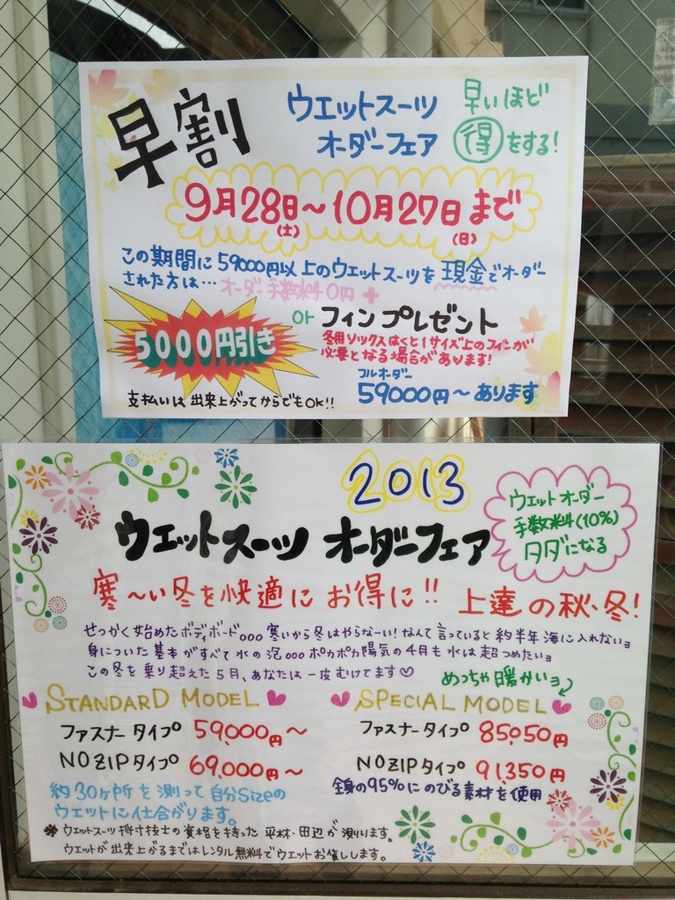 早割
ウエットスーツ
オーダーフェア
早いほど
得をする!
9月28日~10月27日まで
(土)
(日)
この期間に59000円以上のウェットスーツを現金でオーダー
された方は…オーダー手数料0円+
5000円引き
or フィンプレゼント
冬用ソックスはくと1サイズ上のフィンが
必要となる場合があります!
フルオーダー
59000円~あります
支払いは出来上がってからでもOK!!
2013
ウエットスーツ オーダーフェア
ウェットオーダー
手数料(10%)
タダになる
寒~い冬を快適に お得に!! 上達の秋、冬!
せっかく始めたボディボード。。。寒いから冬はやらなーい!なんて言っていると約半年海に入れないョ
身についた基本がすべて水の泡。。。ポカポカ陽気の4月も水は超つめたいョ
この冬を乗り超えた5月、あなたは一皮むけてます♡
めっちゃ暖かいョ
STANDARD MODEL
ファスナータイプ 59,000円~
NOZIPタイプ 69,000円~
約30ヶ所を測って自分Sizeの
ウエットに仕合がります。
SPECIAL MODEL
ファスナータイプ 85,050円
NOZIPタイプ 91,350円
全身の95%にのびる素材を使用
※ウエットスーツ採寸技士の資格を持った 平林・田辺が測ります。
ウエットが出来上がるまではレンタル無料でウエットお貸しします。